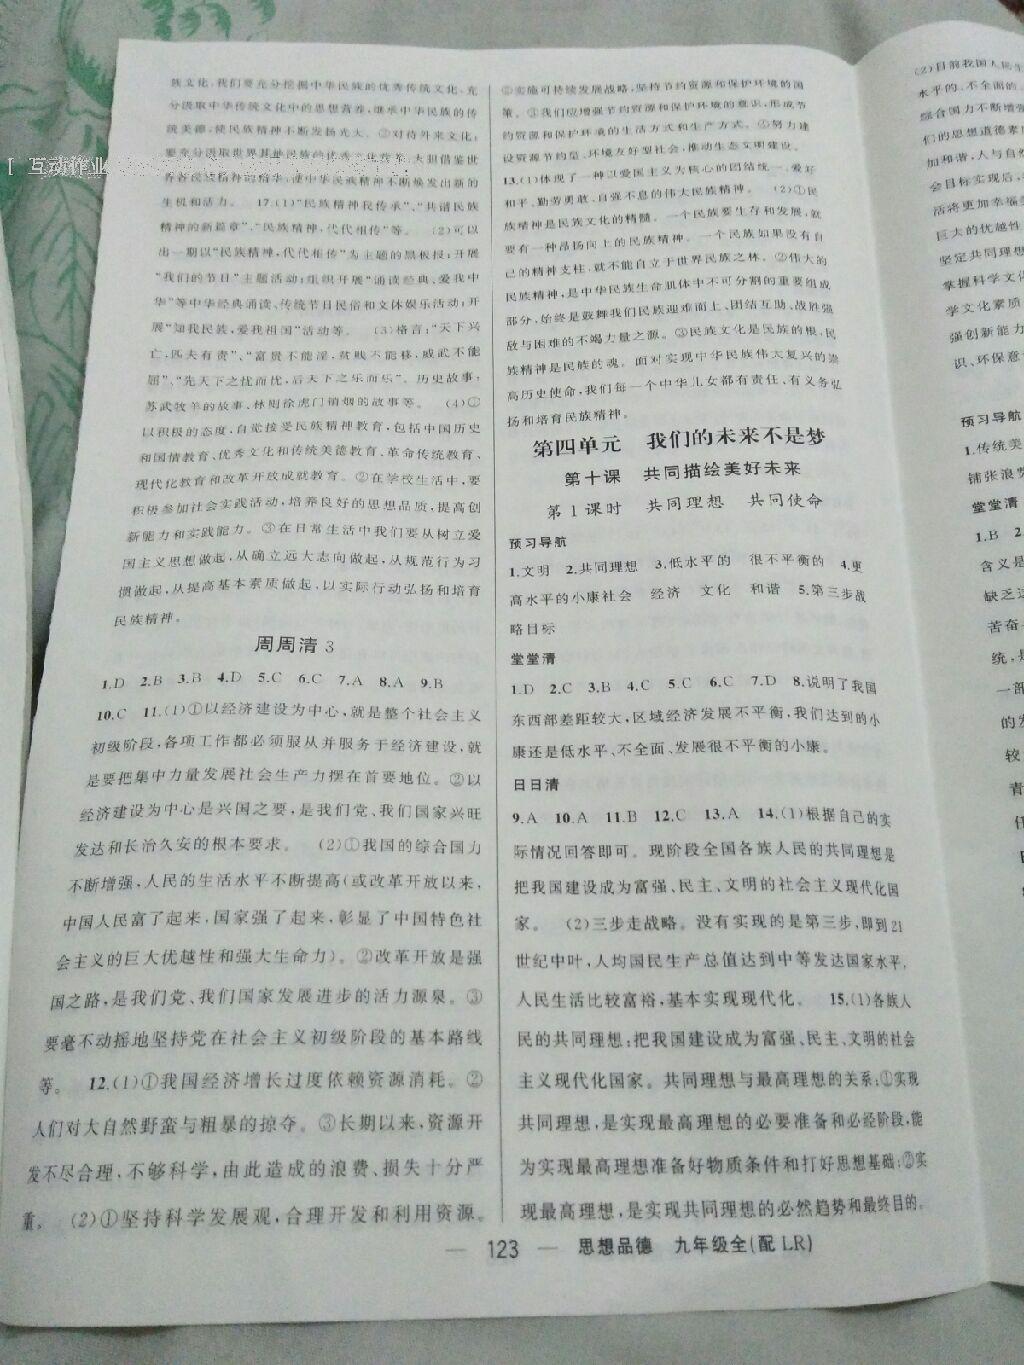 族文化,我们要充分挖掘中华民族的优秀传统文化、充
分汲取中华传统文化中的思想营养,继承中华民族的传
统美德,使民族精神不断发扬光大。②对待外来文化:
要充分汲取世界其他民族的优秀文化成果,大胆借鉴世
界各民族精神的精华,使中华民族精神不断焕发出新的
生机和活力。 17.(1)“民族精神我传承”、“共谱民族
精神的新篇章”、“民族精神,代代相传”等。 (2)可以
出一期以“民族精神,代代相传”为主题的黑板报;开展
“我们的节日”主题活动;组织开展“诵读经典、爱我中
华”等中华经典诵读、传统节日民俗和文体娱乐活动;开
展“知我民族,爱我祖国”活动等。 (3)格言:“天下兴
亡,匹夫有责”、“富贵不能淫,贫贱不能移,威武不能
屈”、“先天下之忧而忧,后天下之乐而乐”。历史故事:
苏武牧羊的故事、林则徐虎门销烟的故事等。 (4)①
以积极的态度,自觉接受民族精神教育,包括中国历史
和国情教育、优秀文化和传统美德教育、革命传统教育、
现代化教育和改革开放成就教育。②在学校生活中,要
积极参加社会实践活动,培养良好的思想品质,提高创
新能力和实践能力。③在日常生活中我们要从树立爱
国主义思想做起,从确立远大志向做起,从规范行为习
惯做起,从提高基本素质做起,以实际行动弘扬和培育
民族精神。
周周清3
1.D 2.B 3.B 4.D 5.C 6.C 7.A 8.A 9.B
10.C 11.(1)①以经济建设为中心,就是整个社会主义
初级阶段,各项工作都必须服从并服务于经济建设,就
是要把集中力量发展社会生产力摆在首要地位。②以
经济建设为中心是兴国之要,是我们党、我们国家兴旺
发达和长治久安的根本要求。 (2)①我国的综合国力
不断增强,人民的生活水平不断提高(或改革开放以来,
中国人民富了起来,国家强了起来,彰显了中国特色社
会主义的巨大优越性和强大生命力)。②改革开放是强
国之路,是我们党、我们国家发展进步的活力源泉。③
要毫不动摇地坚持党在社会主义初级阶段的基本路线
等。 12.(1)①我国经济增长过度依赖资源消耗。②
人们对大自然野蛮与粗暴的掠夺。③长期以来,资源开
发不尽合理、不够科学,由此造成的浪费、损失十分严
重。 (2)①坚持科学发展观,合理开发和利用资源。
②实施可持续发展战略,坚持节约资源和保护环境的国
策。③我们应增强节约资源和保护环境的意识,形成节
约资源和保护环境的生活方式和生产方式。④努力建
设资源节约型、环境友好型社会,推动生态文明建设。
13.(1)体现了一种以爱国主义为核心的团结统一、爱好
和平、勤劳勇敢、自强不息的伟大民族精神。 (2)①民
族精神是民族文化的精髓。一个民族要生存和发展,就
要有一种昂扬向上的民族精神。一个民族如果没有自
己的精神支柱,就不能自立于世界民族之林。②伟大的
民族精神,是中华民族生命肌体中不可分割的重要组成
部分,始终是鼓舞我们民族迎难而上、团结互助、战胜强
敌与困难的不竭力量之源。③民族文化是民族的根,民
族精神是民族的魂。面对实现中华民族伟大复兴的崇
高历史使命,我们每一个中华儿女都有责任、有义务弘
扬和培育民族精神。
第四单元 我们的未来不是梦
第十课 共同描绘美好未来
第1课时 共同理想 共同使命
预习导航
1.文明 2.共同理想 3.低水平的 很不平衡的 4.更
高水平的小康社会 经济 文化 和谐 5.第三步战
略目标
堂堂清
1.D 2.C 3.B 4.C 5.C 6.C 7.D 8.说明了我国
东西部差距较大,区域经济发展不平衡,我们达到的小
康还是低水平、不全面、发展很不平衡的小康。
日日清
9.A 10.A 11.B 12.C 13.A 14.(1)根据自己的实
际情况回答即可。现阶段全国各族人民的共同理想是
把我国建设成为富强、民主、文明的社会主义现代化国
家。 (2)三步走战略。没有实现的是第三步,即到21
世纪中叶,人均国民生产总值达到中等发达国家水平,
人民生活比较富裕,基本实现现代化。 15.(1)各族人
民的共同理想:把我国建设成为富强、民主、文明的社会
主义现代化国家。共同理想与最高理想的关系:①实现
共同理想,是实现最高理想的必要准备和必经阶段,能
为实现最高理想准备好物质条件和打好思想基础;②实
现最高理想,是实现共同理想的必然趋势和最终目的。
— 123 — 思想品德 九年级全(配LR)
(2)目前我国人民生
水平的、不全面的、
综合国力不断增强
们的思想道德素
加和谐,人与自然
会目标实现后,
活将更加幸福美
巨大的优越性
坚定共同理想
掌握科学文
学文化素质
强创新能力
识、环保意
预习导航
1.传统美
铺张浪费
堂堂清
1.B 2.
含义是
缺乏
苦奋
统,是
一部
的发
较
青
任
[ 互动作业